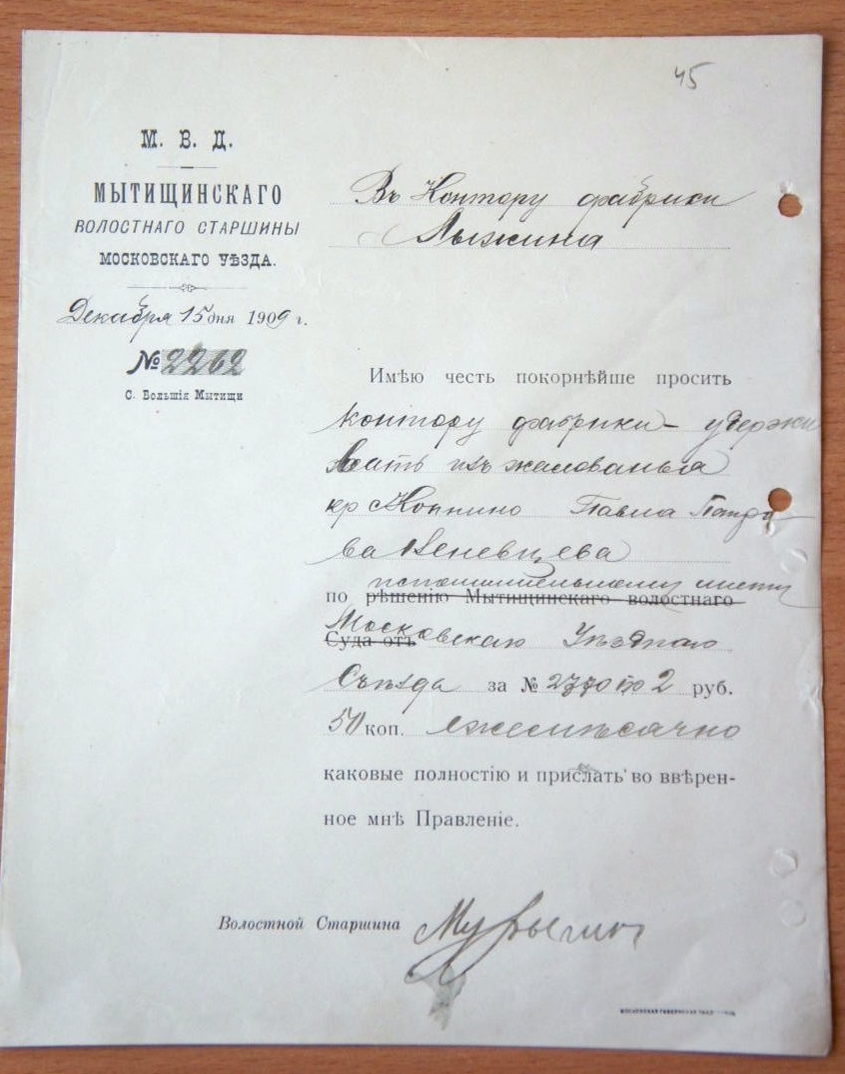 45
М. В. Д.
МЫТИЩИНСКАГО
ВОЛОСТНАГО СТАРШИНЫ
МОСКОВСКАГО УѢЗДА.
Декабря 15 дня 1909 г.
№ 2262
С. Большія Мытищи
Въ Контору фабрики
Лыжина
Имѣю честь покорнѣйше просить
контору фабрики удержи
вать изъ жалованья
кр Коппино Павла
ва Веневцева
исполнительному листу
по рѣшенію Мытищинскаго волостнаго
Суда отъ Московскаго Уѣзднаго
Съѣзда за № 2770 по 2 руб.
50 коп. ежемѣсячно
каковые полностію и прислать во ввѣрен-
ное мнѣ Правленіе.
Волостной Старшина